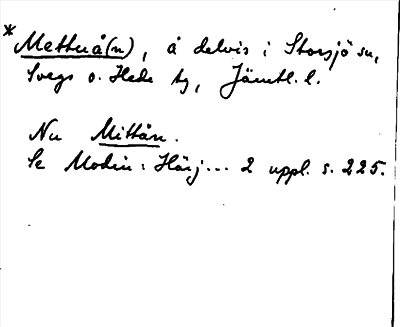 *Mettuå(n), å delvis i Storsjö sn,
Svegs o. Hede tg, Jämtl. l.
Nu Mittån.
Se Modin: Härj... 2 uppl. s. 225.